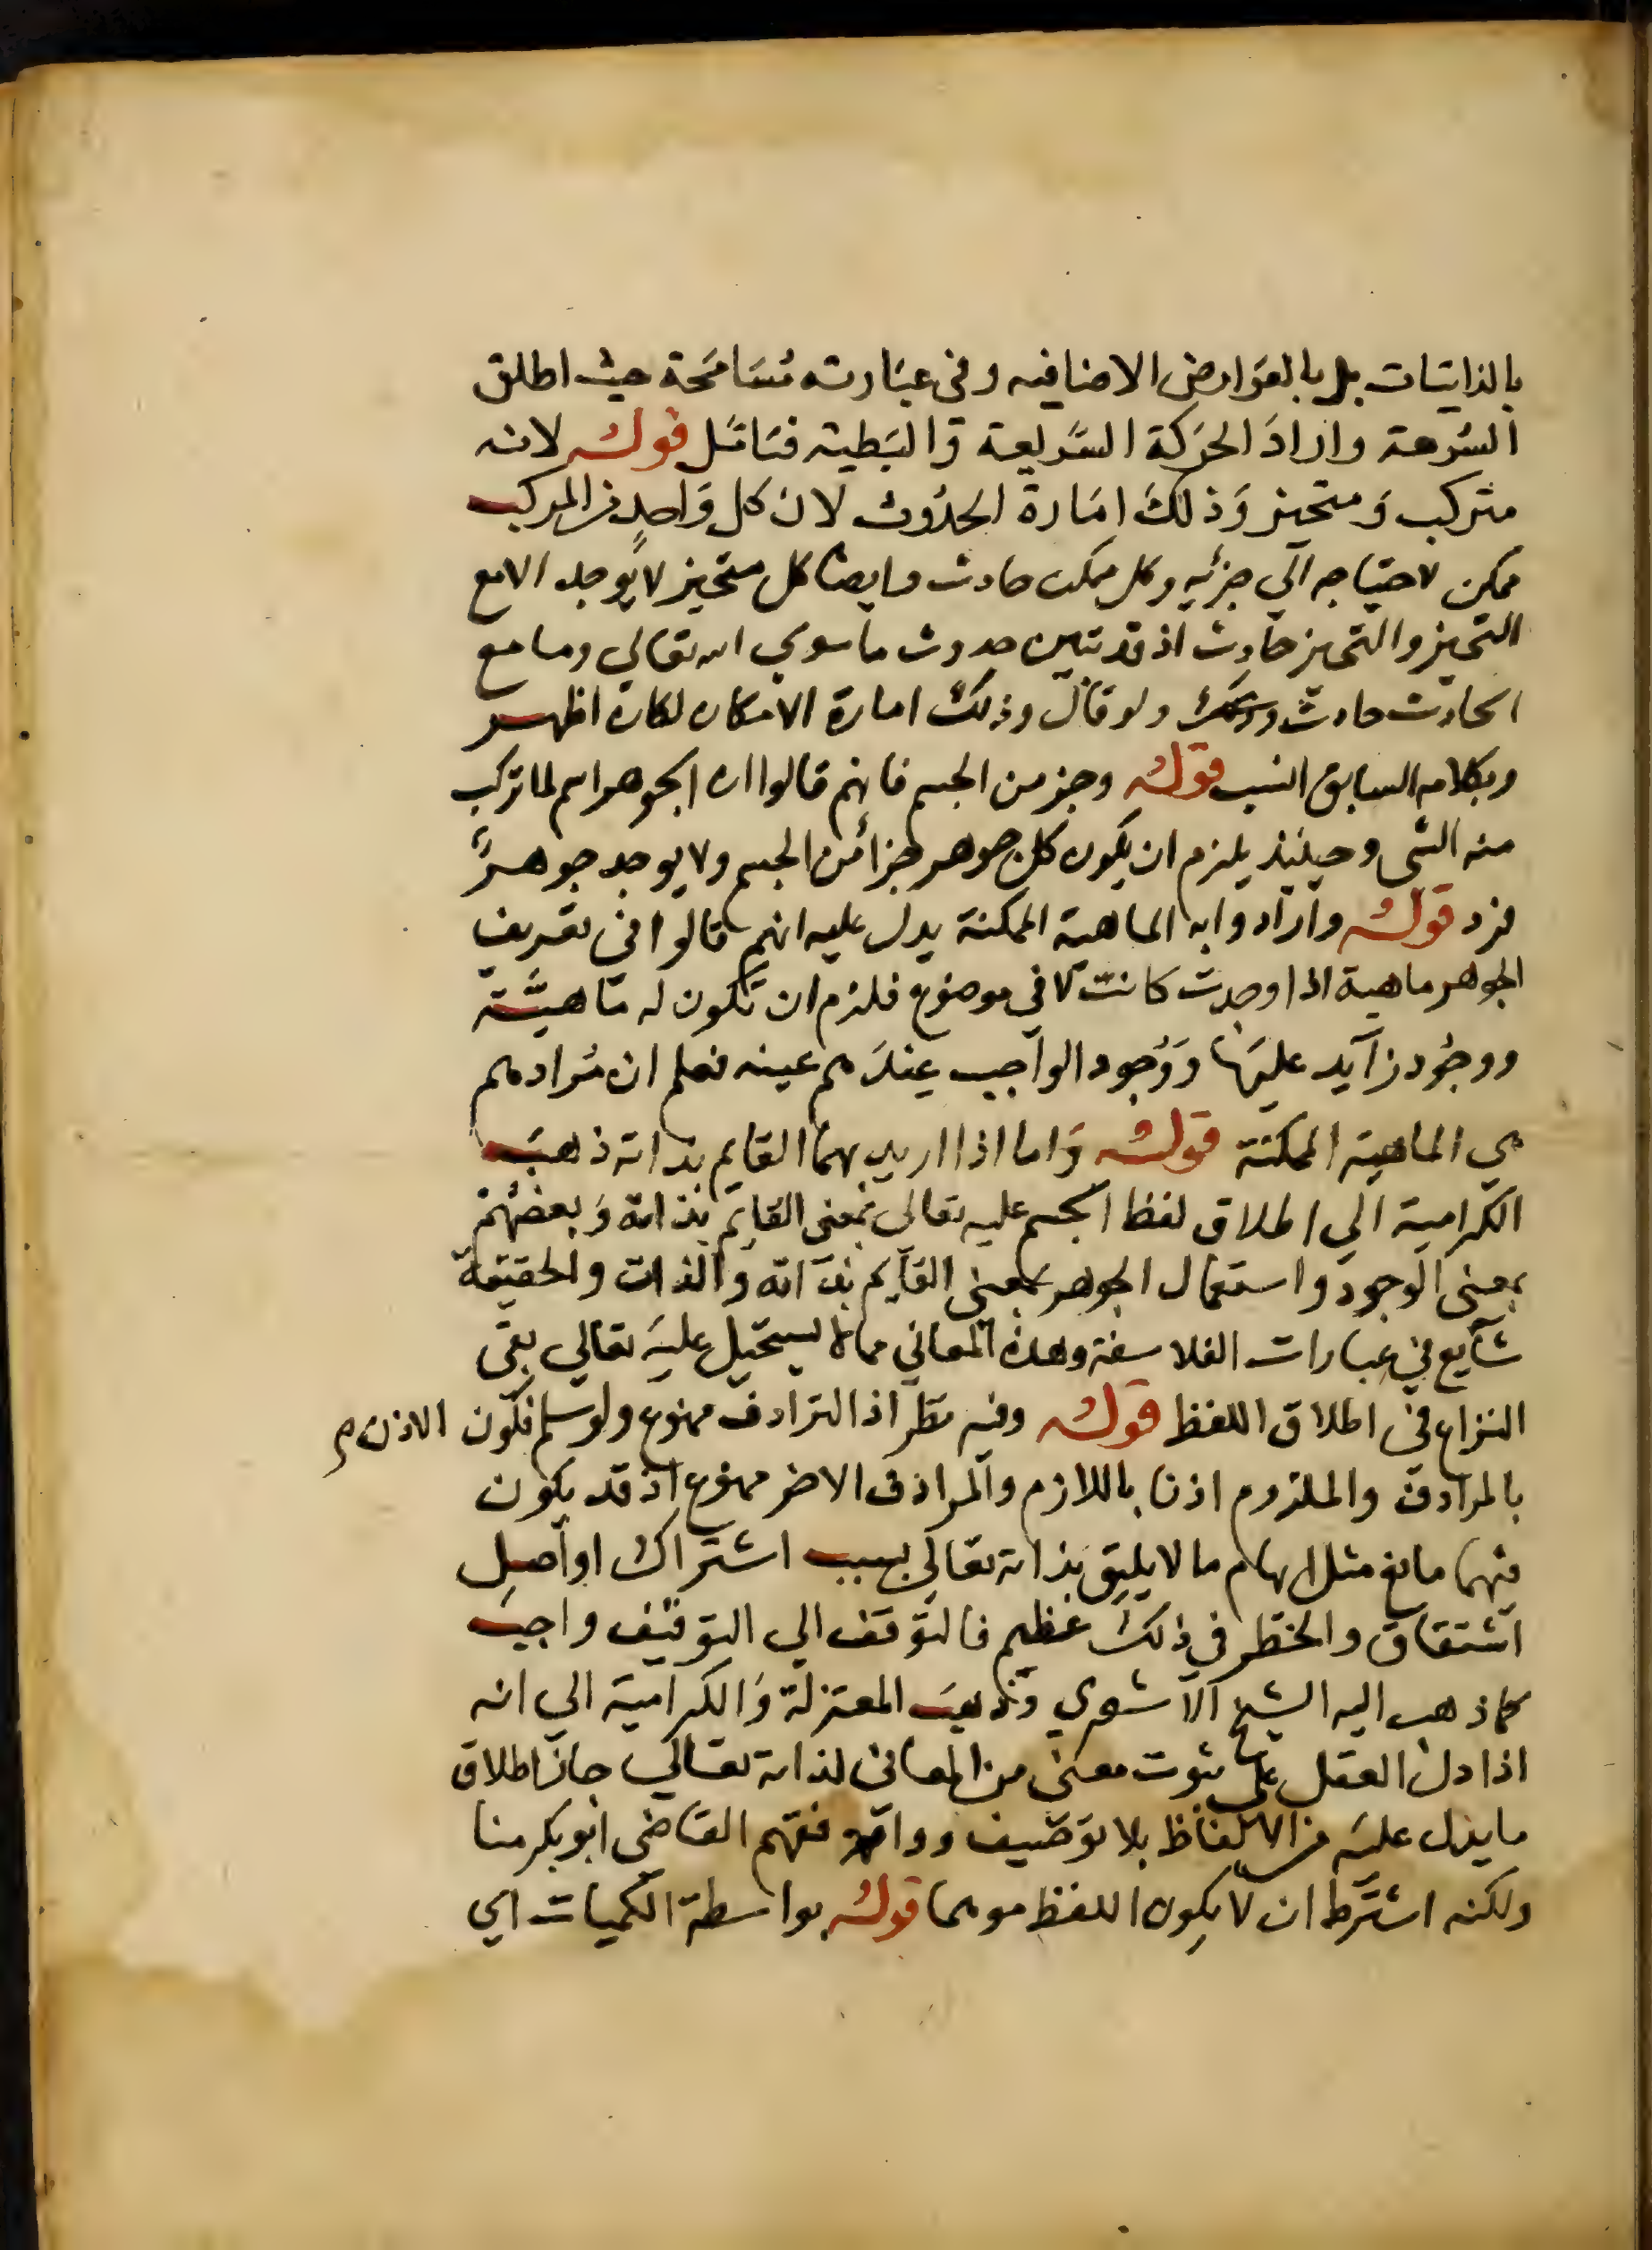 بالذاتيات بل بالعوارض الاضافيه وفى عبارته مُسَامَحَة حيث اطلق
السُّرعة واراد الحَرَكة السَّريعة والبَطيئه فتامّل قوله لانه
متركب وَمتحيز وَذلك امَارة الحدُوث لان كل وَاحدٍ من المركب
ممكن لاحتياجه الى جزئه وكل ممكن حادث وايضا كل متحيز لا يُوجد الا مع
التحيز والتحيز حادث اذ قد تبين حدوث ما سوى الله تعالي وما مع
الحادث حادث ولو قال وذلك امارة الامكان لكان اظهر
وبكلامه السابق انسب قوله وجز من الجسم فانهم قالوا ان الجوهر اسم لما تركب
منه الشى وحينيذ يلزم ان يكون كل جوهر جزأ من الجسم ولا يوجد جوهرٌ
فرد قوله وارادوا به الماهية الممكنة يدل عليه انهم قالوا فى تعريف
الجوهر ماهية اذا وجدت كانت لا في موضوع فلزم ان تكون له مَاهيَّة
ووجُود زآيد عليهَا وَوُجود الواجب عندَهم عينه فعلم ان مُرادهم
هي الماهية الممكنة قوله وَاما اذا اريد بهمَا القايم بذاته ذهبَ
الكرامية الي اطلاق لفظ الجسم عليه تعالى بمعنى القايم بذاته وَبعضهُم
بمعنى الوجود واستعمال الجوهر بمعنى القآيم بذاته والذات والحقيقة
شآيع في عبارات الفلاسفة وهذه المعاني مما لا يستحيل عليه تعالي بقى
النزاع فى اطلاق اللفظ قوله وفيه نظر اذ الترادف ممنوع ولو سلم فكون الاذن م
بالمرادف والملزوم اذنا باللازم والمرادف الاخر ممنوع اذ قد يكون
فيهما مانع مثل ايهام ما لا يليق بذاته تعالى بسبب اشتراك او اصل
اشتقاق والخطر في ذلك عظيم فالتوقف الي التوقيف واجب
كما ذهب اليه الشيخ الاشعري وذهبَ المعتزلة وَالكرامية الي انه
اذا دل العقل على ثبوت معنى من المعانى لذاته تعالي جاز اطلاق
ما يدل عليه من الالفاظ بلا توقيف ووافقهم القاضى ابو بكر منا
ولكنه اشترط ان لا يكون اللفظ موهما قوله بواسطة الكميات اي